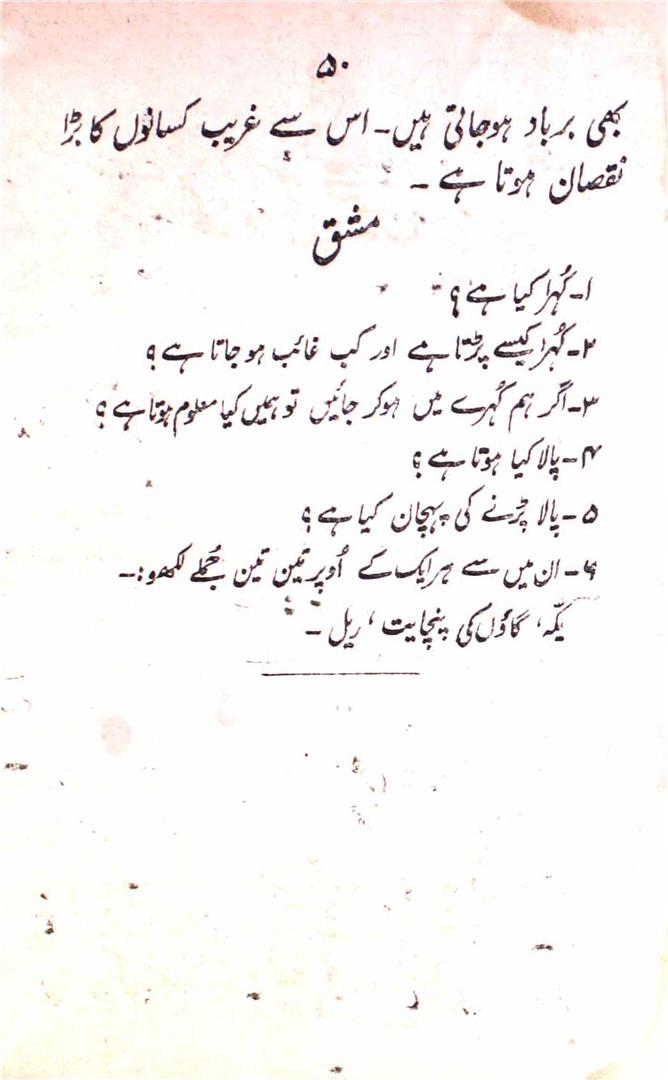 ۵۰
بھی برباد ہوجاتی ہیں۔ اس سے غریب کسانوں کا بڑا
نقصان ہوتا ہے ۔
مشق
۱۔ کُہرا کیا ہے؟
۲۔ کُہرا کیسے پڑتا ہے اور کب غائب ہوجاتا ہے؟
۳۔ اگر ہم کُہرے میں ہوکر جائیں تو ہمیں کیا معلوم ہوتا ہے؟
۴۔ پالا کیا ہوتا ہے؟
۵۔ پالا پڑنے کی پہچان کیا ہے؟
۶۔ ان میں سے ہر ایک کے اُوپر تین تین جُملے لکھو:۔
یکّہ، گاؤں کی پنچایت، ریل ۔